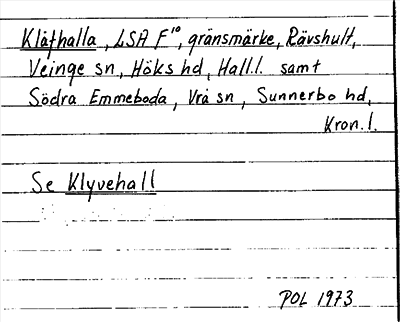 Klåfhalla, LSA F¹⁰, gränsmärke, Rävshult,
Veinge sn, Höks hd, Hall.l. samt
Södra Emmeboda, Vrå sn, Sunnerbo hd,
Kron.l.
Se Klyvehall
POL 1973